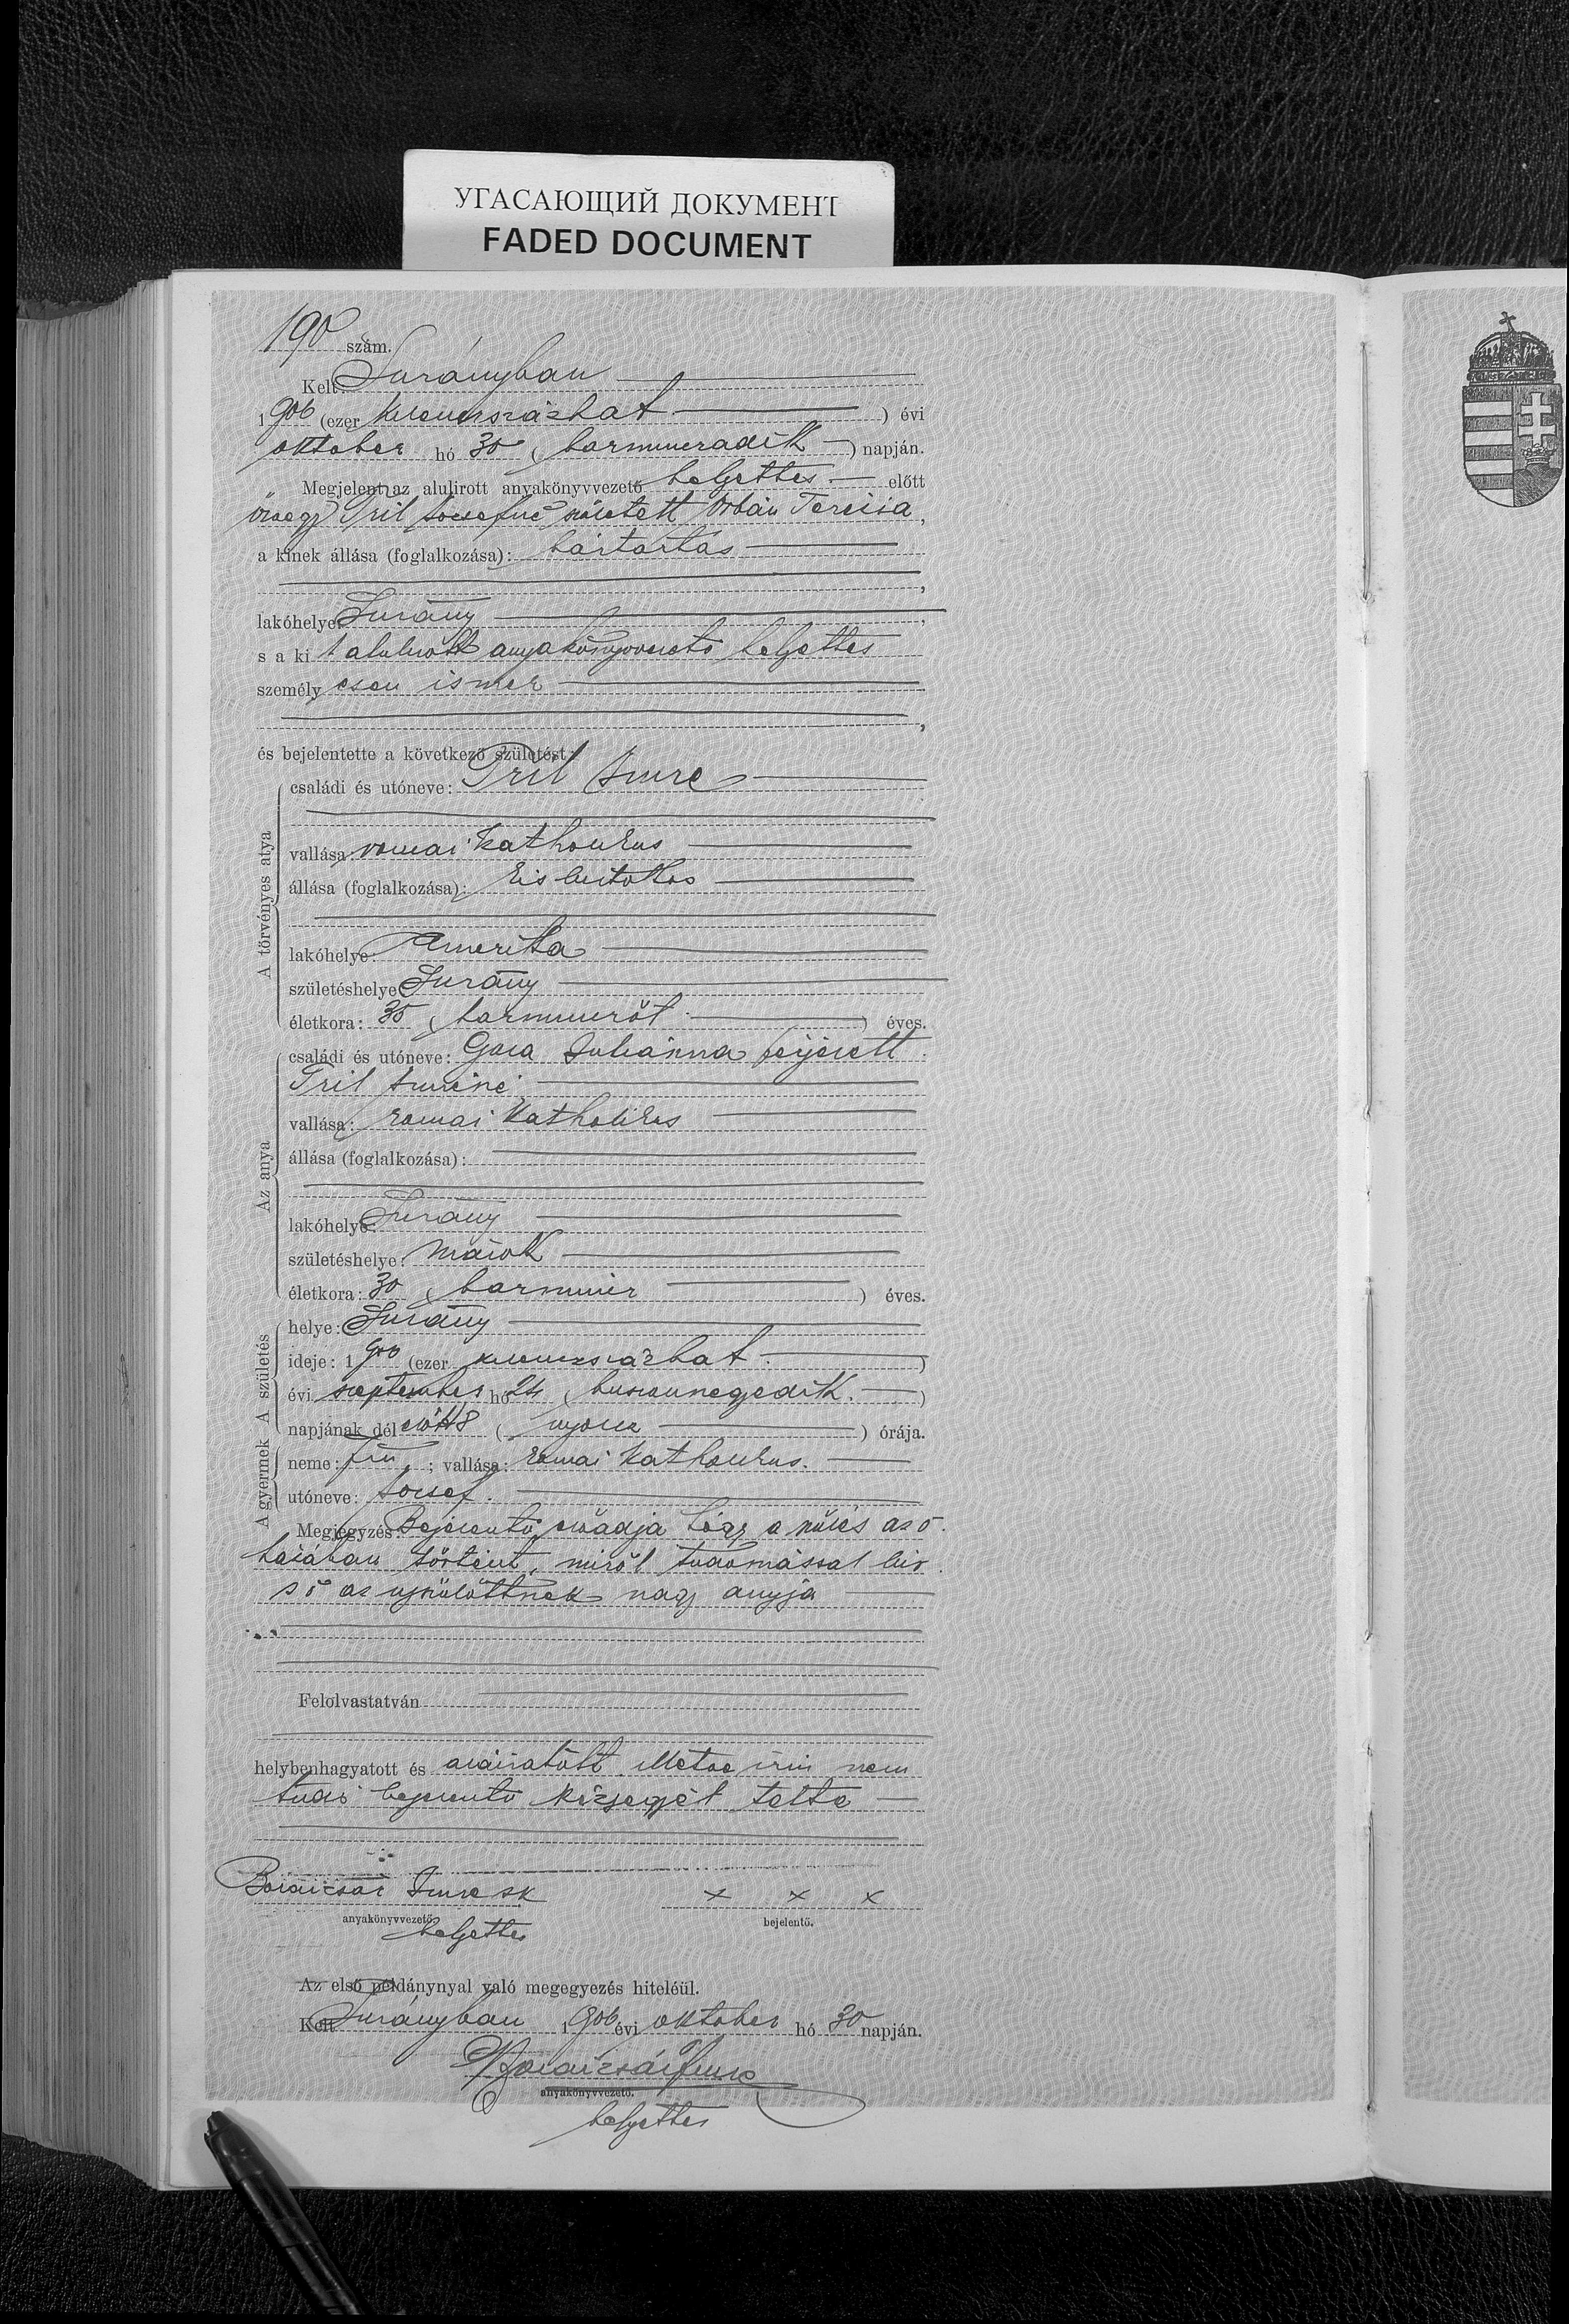 УГАСАЮЩИЙ ДОКУМЕНТ
FADED DOCUMENT
190 szám.
Kelt Surányban
1906 (ezer kilencszázhat) évi
oktober hó 30 (harminczadik) napján.
Megjelent az alulirott anyakönyvvezető helyettes előtt
özvegy Pril Józsefné született Orbán Terézia,
a kinek állása (foglalkozása): háztartás
lakóhelye Surány,
s a kit alulirott anyakönyvvezető helyettes
személyesen ismer,
és bejelentette a következő születést:
A törvényes atya
családi és utóneve: Pril Imre
vallása: romai katholikus
állása (foglalkozása): kisbirtokos
lakóhelye: Amerika
születéshelye Surány
életkora: 35 (harminczöt) éves.
Az anya
családi és utóneve: Juliánna férjezett
Pril Imréné
vallása: romai katholikus
állása (foglalkozása):
lakóhelye Surány
születéshelye:
életkora: 30 (harmincz) éves.
A születés
helye: Surány
ideje: 1906 (ezer kilenczszázhat)
évi szeptember hó 24 (huszonnegyedik.)
napjának délelőtt 8 (nyolcz) órája.
A gyermek
neme: fiu, ; vallása: romai katholikus.
utóneve: József.
Megjegyzés: Bejelentő előadja hogy a szülés az ő
házában történt, miről tudomással bir
s ő az ujszülöttnek nagy anyja
Felolvastatván
helybenhagyatott és aláiratott. Illetve irni nem
tudó bejelentő kézjegyét tette
Imre sk
x x x
anyakönyvvezető
helyettes
bejelentő.
Az első példánynyal való megegyezés hiteléül.
Kelt Surányban 1906 évi oktober hó 30 napján.
Imre
anyakönyvvezető.
helyettes